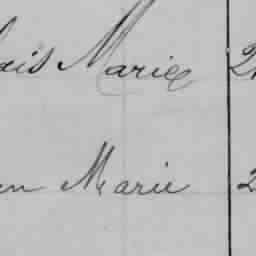 ais Marie 2
en Marie 2